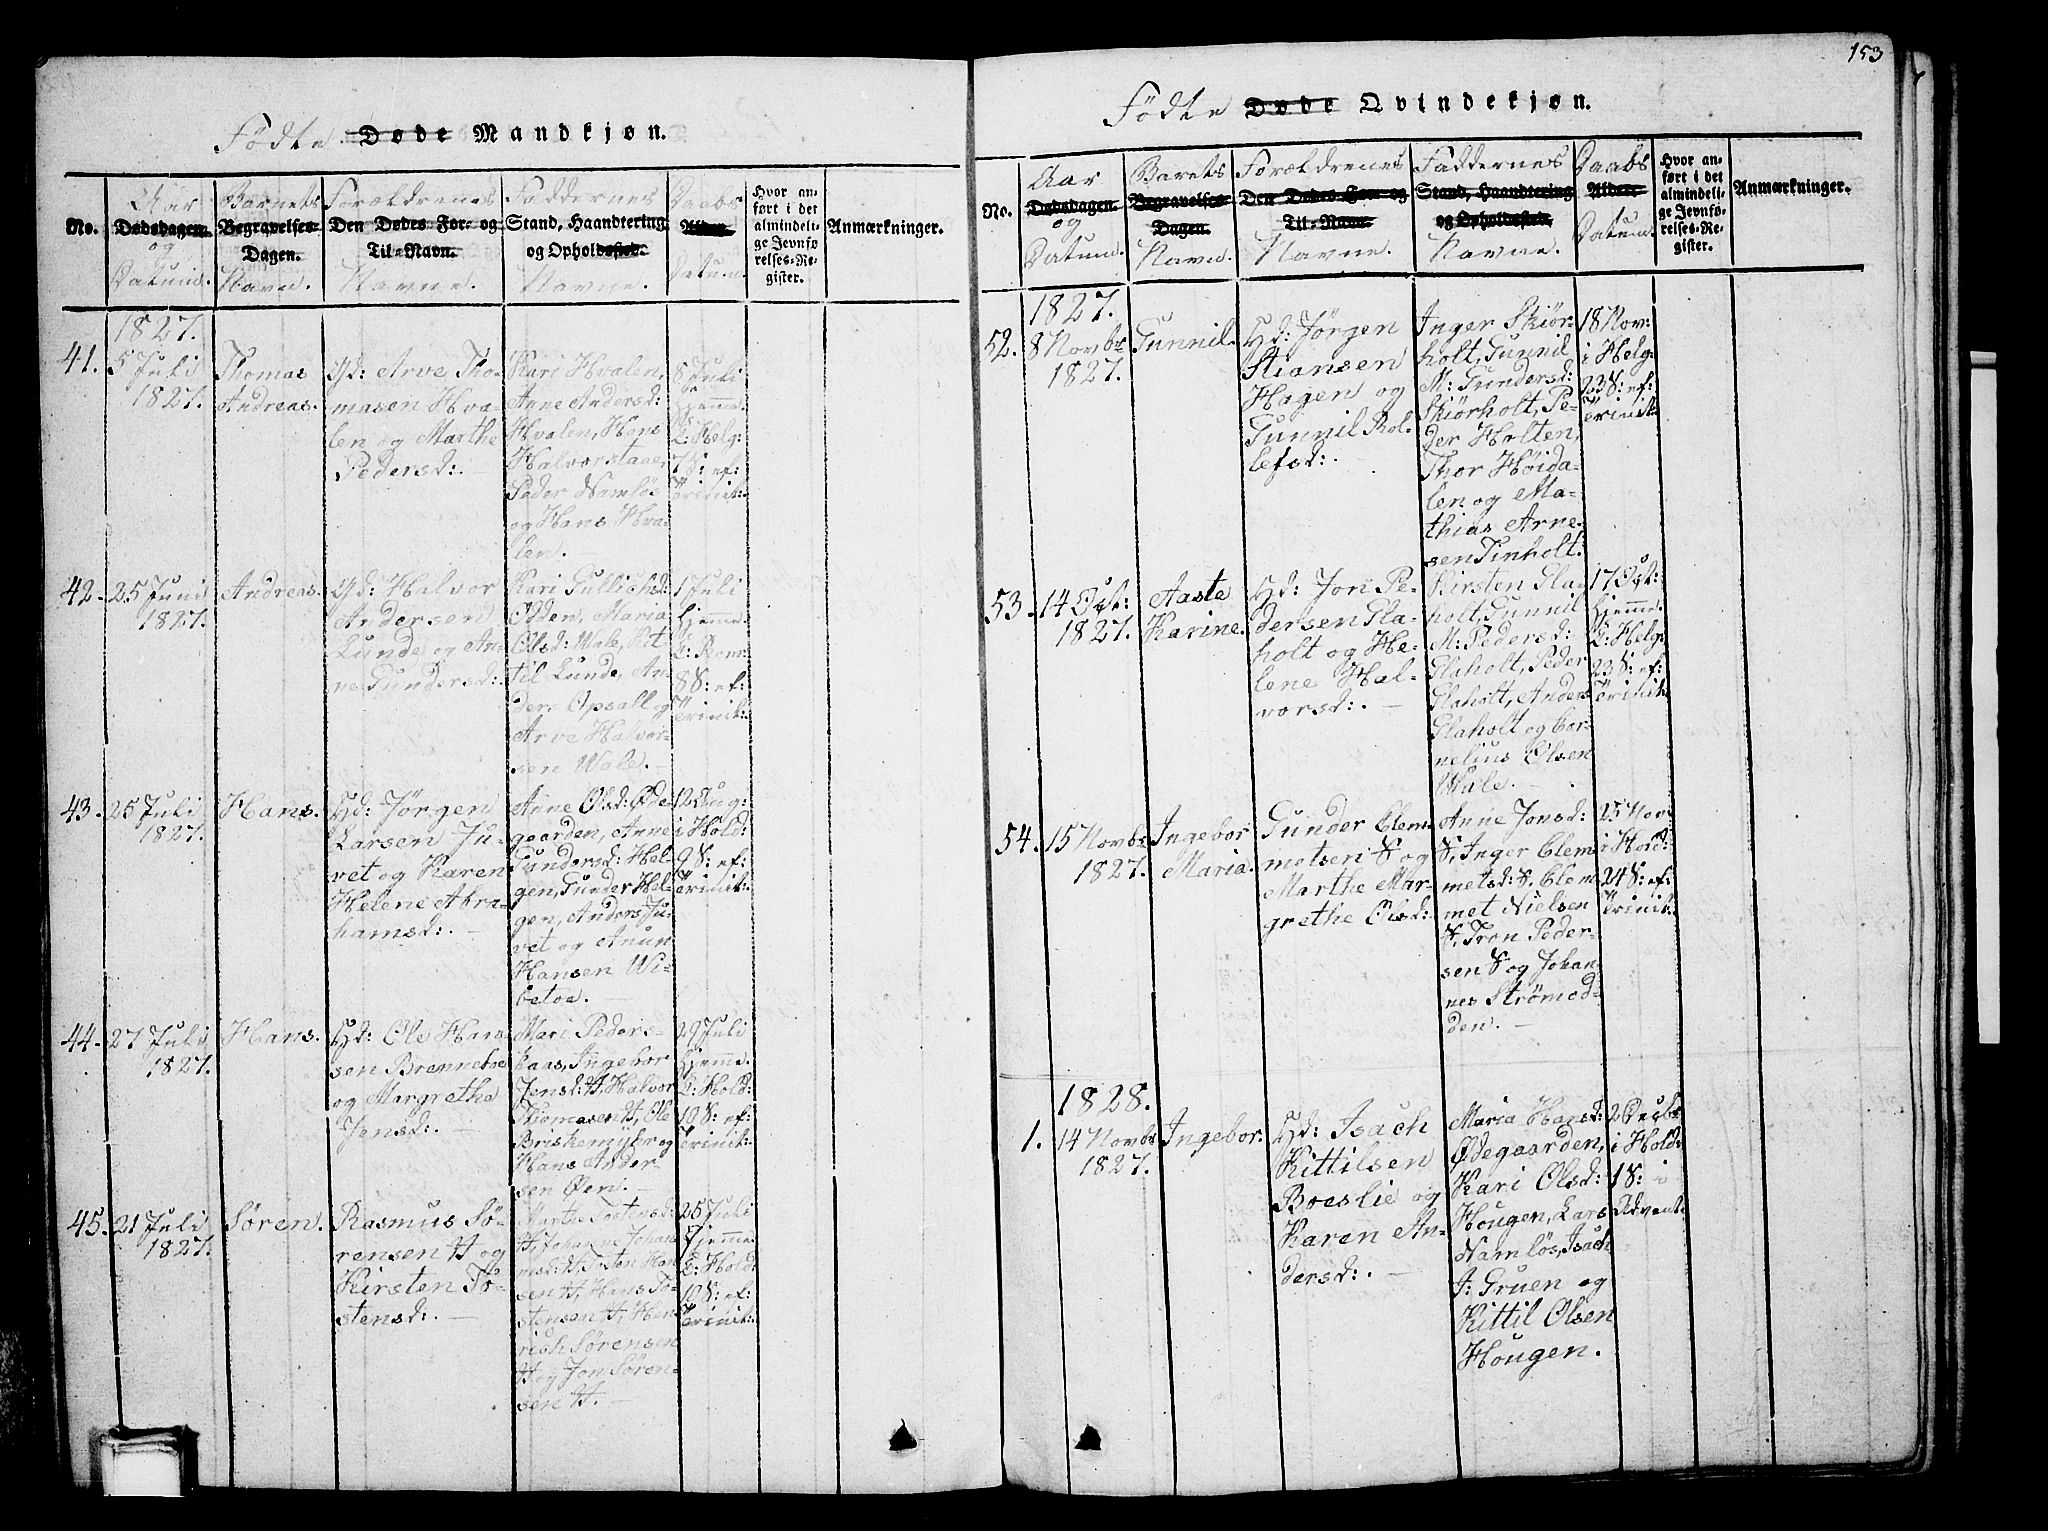 153
Fødte Døde Mandkjøn.
No.
Aar
Dødsdagen.
og
Datum.
Barnets
Begravelses-
Dagen.
Navn.
Forældrenes
Den Dødes For- og
Til-Navn.
Navne.
Faddernes
Stand, Haandtering
og Opholdssted.
Navne.
Daabs
Alder.
Datum.
Hvor an-
ført i det
almindeli-
ge Jevnfø
relses-Re-
gister.
Anmærkninger.
1827.
41.
5 Juli
1827.
Thomas
Andreas.
Gd: Arve Tho-
masen Hva-
len og Marthe
Pedersd: . —
Kari Hvalen,
Anne Andersd:
Hvalen, Hans
Halvorstaae,
Peder Namløs
og Hans Hva-
len. —
8 Juli
Hjemme.
T: Helg:
7 S: ef:
Trinit:
42.
25 Juni
1827.
Andreas.
Gd: Halvor
Andersen
Lunde og An-
ne Gundersd:
Kari Gullichsd:
Odden, Maria
Olsd: Wale, Kit
til Lunde, An-
ders Opsall og
Arve Halvor-
sen Wale. —
1 Juli
Hjemme.
T: Rom:
8 S: ef:
Trinit:
43.
25 Juli
1827.
Hans.
Hd: Jørgen
Larsen Ju-
vet og Karen
Helene Abra-
hamsd: . —
Anne Olsd: Øde
gaarden, Anne
Gundersd: Hel-
gen, Gunder Hel-
gen, Anders Ju-
vet og Anun
Hansen Wi-
betoe. —
12 Aug:
i Hold:
9 S: ef:
Trinit:
44.
27 Juli
1827.
Hans.
Hd: Ole Han-
sen Brennetve
og Margrethe
Jensd: . —
Mari Peders-
kaas, Ingebor
Jensd: H, Halvor
Thomasen H, Ole
Briskemyter og
Hans Ander-
sen Øen. —
29 Juli
Hjemme.
T: Hold:
10 S: ef:
Trinit:
45.
21 Juli
1827.
Søren.
Rasmus Sø-
rensen H og
Kirsten To-
stensd: . —
Marthe Tostensd:
H, Johanne Johan
nesd: H, Tosten Han
sen H, Hans To-
stensen H, Hen
rich Sørensen
H og Jon Søren-
sen H. —
25 Juli
Hjemme.
T: Hold:
10 S: ef:
Trinit:
Fødte Døde Qvindekjøn.
No.
Aar
Dødsdagen.
og
Datum.
Barnets
Begravelses-
Dagen.
Navn.
Forældrenes
Den Dødes For- og
Til-Navn.
Navne.
Faddernes
Stand, Haandtering
og Opholdssted.
Navne.
Daabs
Alder.
Datum.
Hvor an-
ført i det
almindeli-
ge Jevnfø-
relses-Re-
gister.
Anmærkninger.
1827.
52.
8 Novbr
1827.
Gunnil.
Hd: Jørgen
Stiansen
Hagen og
Gunnil Rol-
lefsd: . —
Inger Skiør-
holt, Gunnil
M: Gundersd:
Skiørholt, Pe-
der Holten,
Thor Høida-
len og Ma-
thias Arne-
sen Tinholt.
18 Nov:
i Helg:
23 S: ef:
Trinit:
53.
14 Oct:
1827.
Aaste
Karine.
Hd: Jon Pe-
dersen Fla-
holt og He-
lene Hal-
vorsd: . —
Kirsten Fla-
holt, Gunnil
M: Pedersd:
Flaholt, Peder
Flaholt, Anders
Flaholt og Cor-
nelius Olsen
Wale. —
17 Oct:
Hjemme.
T: Helg:
23 S: ef:
Trinit:
54.
15 Novbr
1827.
Ingebor
Maria.
Gunder Clem-
metsen S og
Marthe Mar-
grethe Olsd:
Anne Jonsd:
S, Inger Clem
metsd: S, Clem
met Nielsen
S, Tron Peder-
sen S og Johan-
nes Strømod-
den. —
25 Nov:
i Hold:
24 S: ef:
Trinit:
1828.
1.
14 Novbr
1827.
Ingebor.
Hd: Isach
Kittilsen
Boeslie og
Karen An-
dersd: . —
Maria Hansd:
Ødegaarden,
Kari Olsd:
Hougen, Lars
Namløs, Isach
J: Gruen og
Kittil Olsen
Hougen.
2 Decbr
i Hold:
1 S: i
Advent: